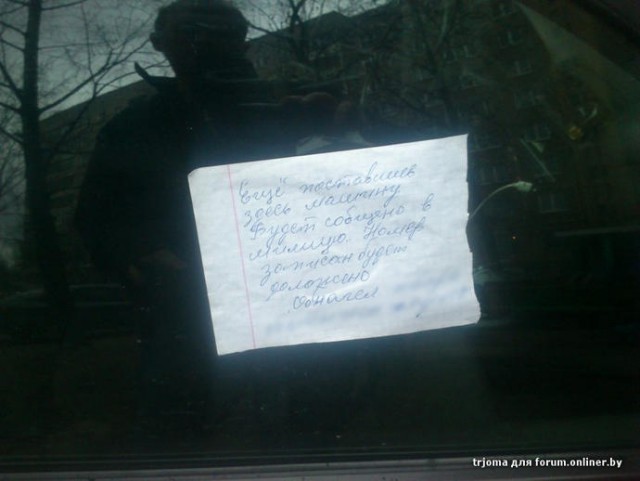 "Ещё" поставишь
здесь машину
Будет собщено в
милицию. Номер
записан будет
доложено
Обнаглел
trjoma для forum.onliner.by